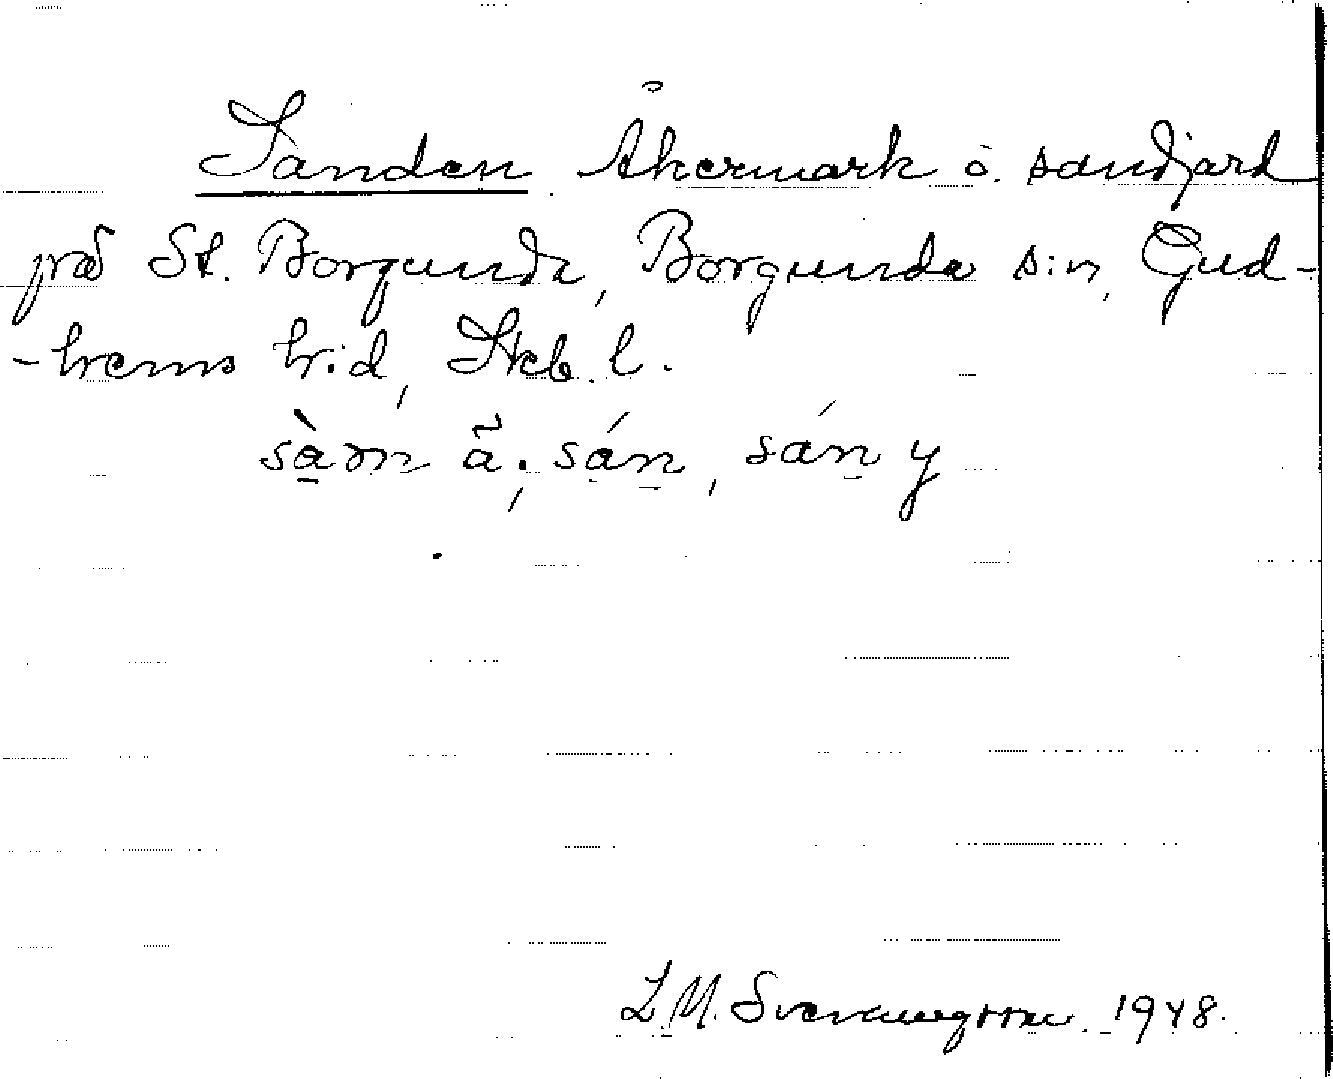 Sanden. Åkermark o. sandjord
på St. Borgunda, Borgunda s:n, Gud-
-hems h:d, Skb. l.
L M. Svenungsson. 1948.